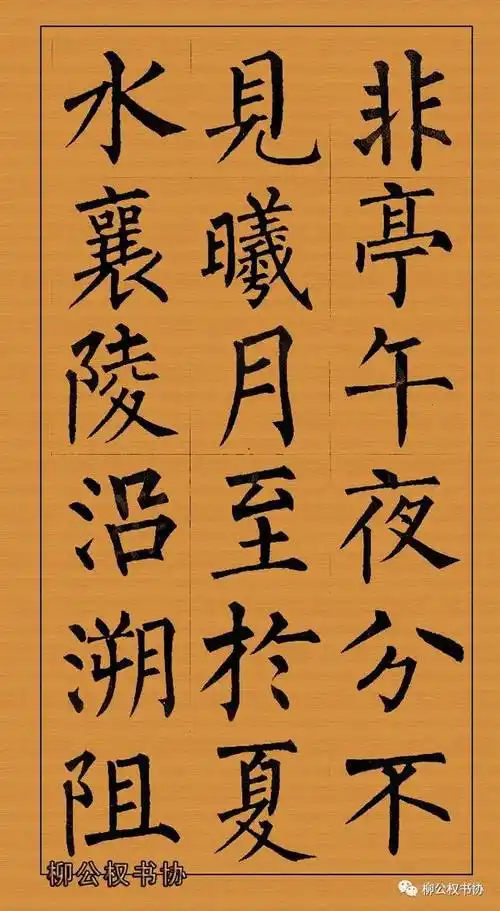 非亭午夜分不
見曦月至於夏
水襄陵沿溯阻
柳公权书协
柳公权书协